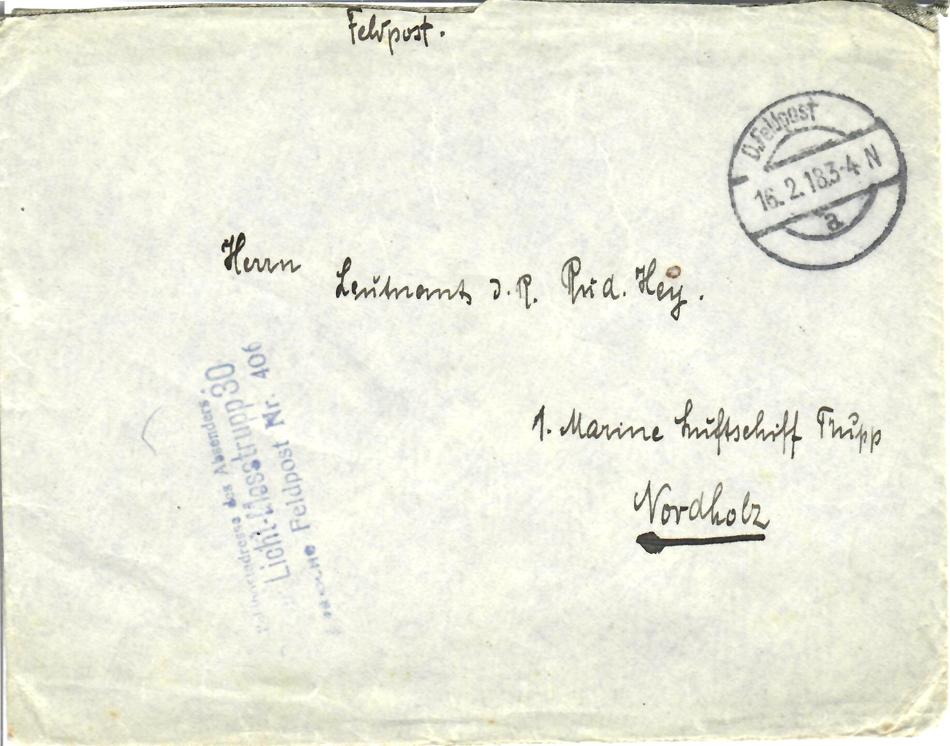 Feldpost.
D. Feldpost
16. 2. 18. 3-4 N
a
Herrn
Leutnant d. R. Rud. Hey.
1. Marine Luftschiff Trupp
Nordholz
des Absenders:
Licht-Messtrupp 80
Feldpost Nr. 406